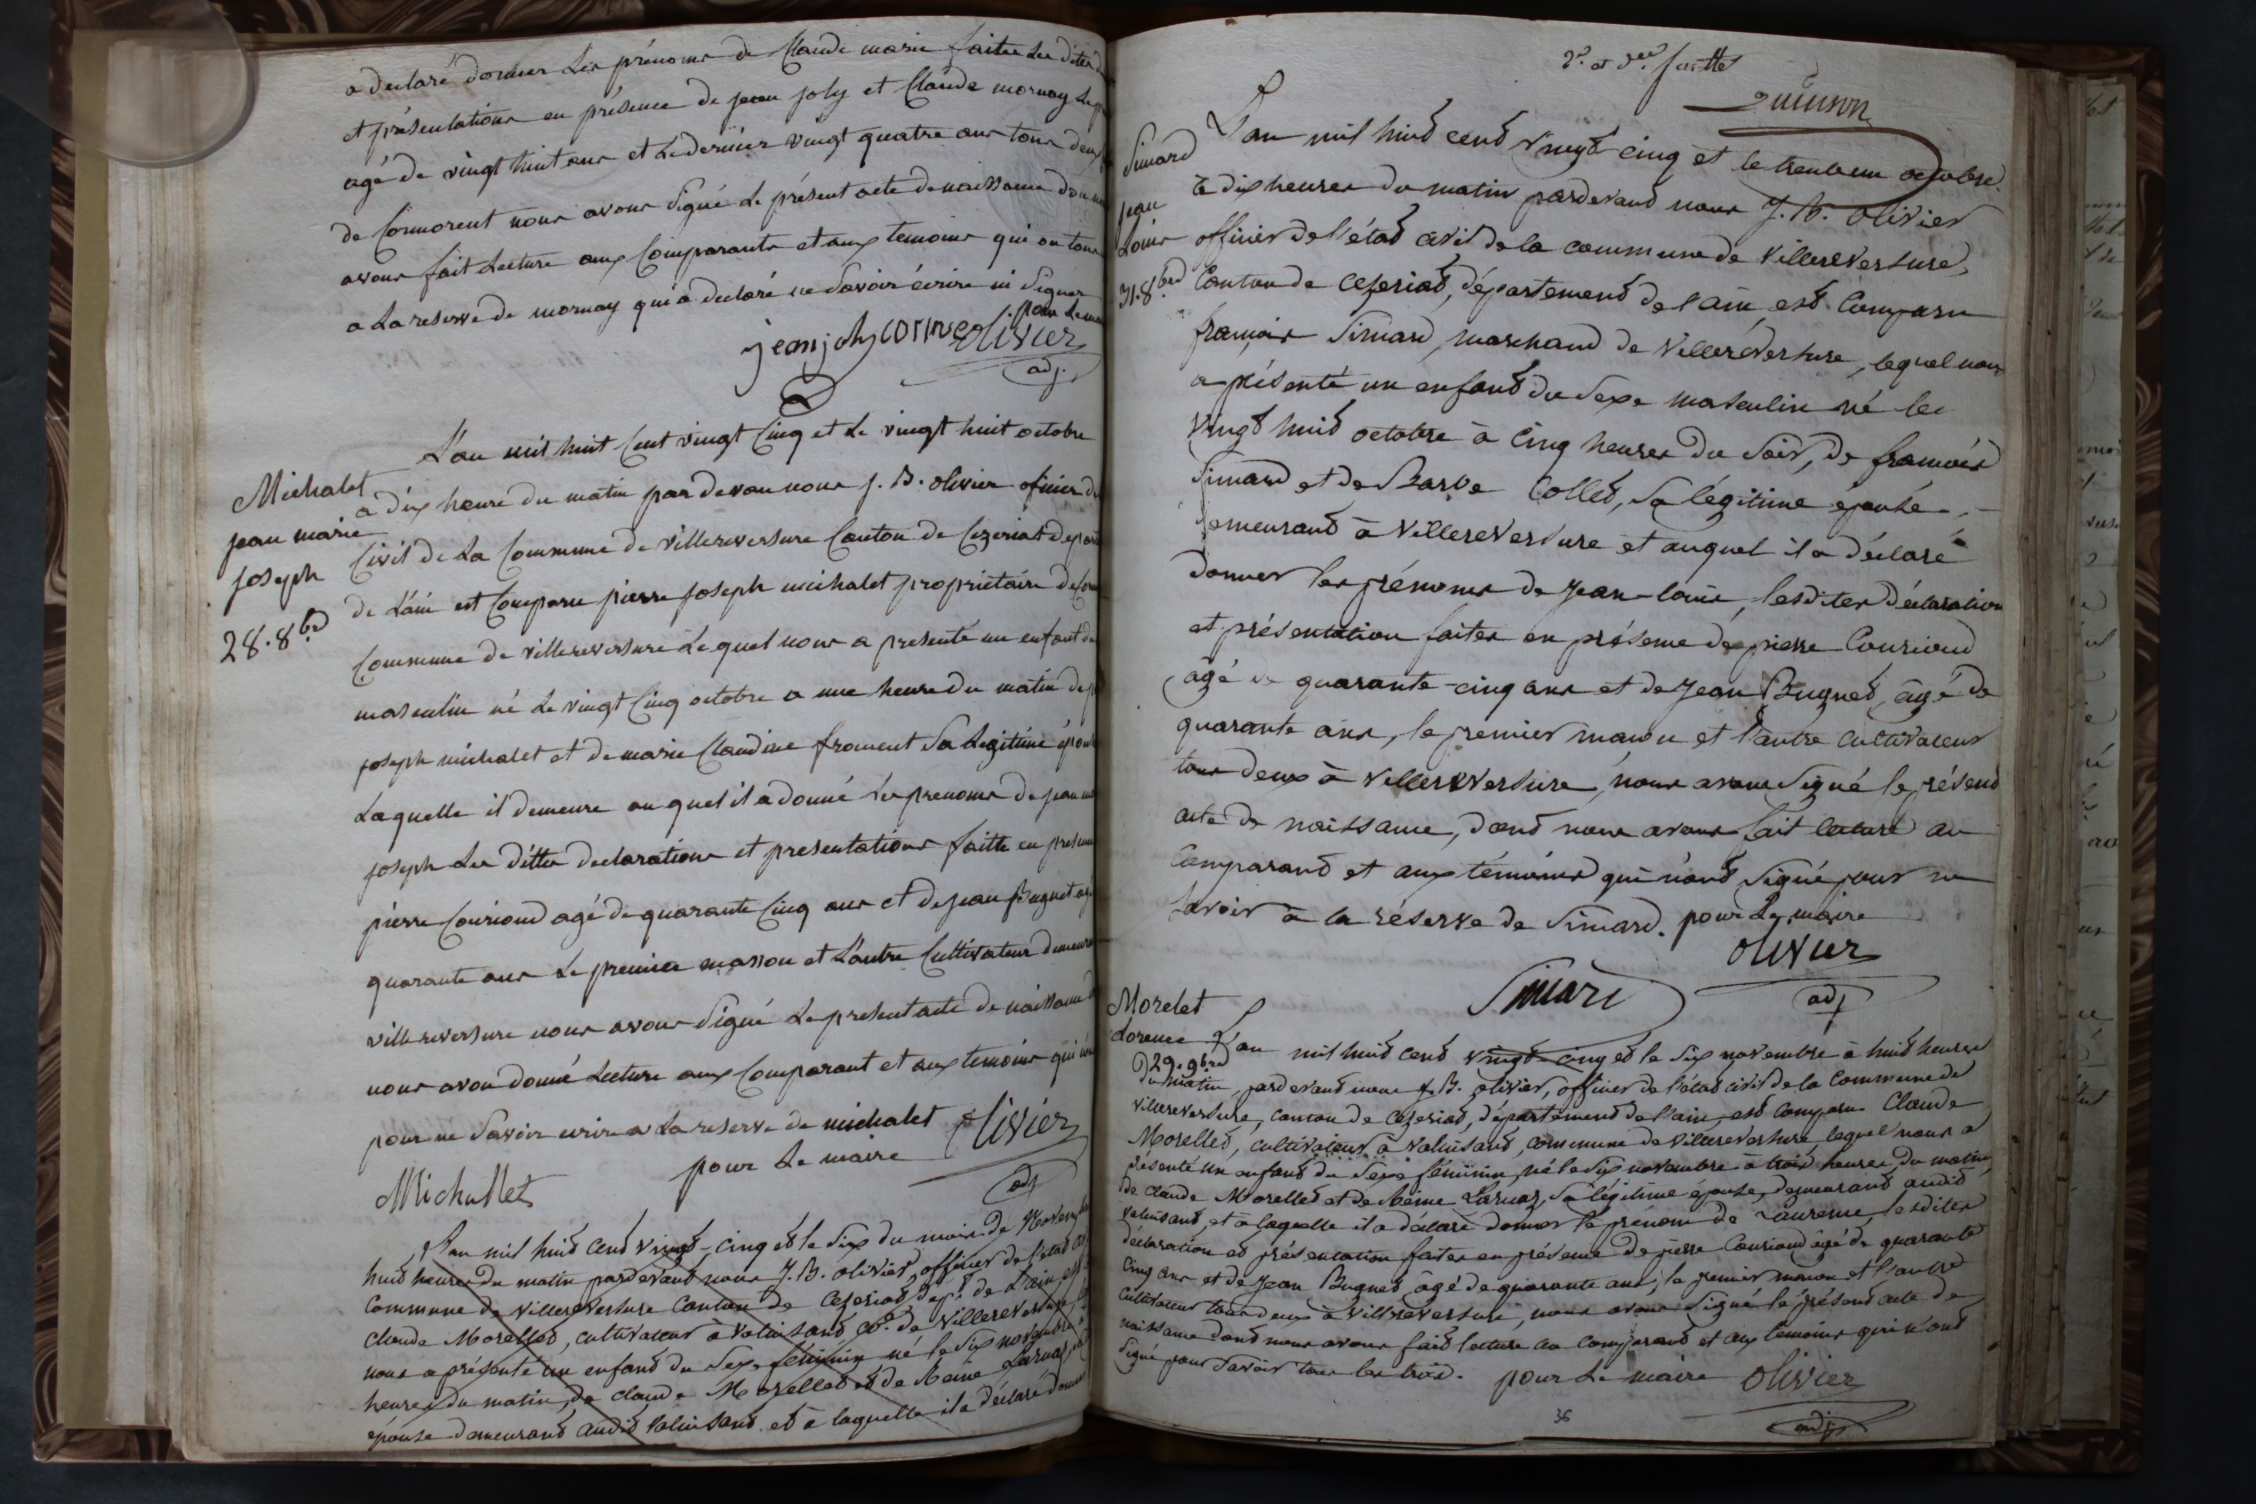 a declaré donner les prénoms de Claude marie faites les dites
et présentations en présence de jean joly et Claude mornay le
agé de vingt huit ans et le dernier vingt quatre ans tous deux
de Cormorent nous avons signé le présent acte de naissance dont
avons fait lecture aux Comparants et aux temoins qui on tous
a la reserve de mornay qui a declaré ne savoir écrire ni signer
pour le
jean joly cornuet olivier
adj.
L'an mil huit Cent vingt Cinq et le vingt huit octobre
Michalet
jean marie
joseph
28. 8bre
a dix heure du matin par devan nous j. B. olivier officier de
Civil de la Commune de villereversure Canton de Cezeriat depart
de l'ain est Comparu pierre joseph michalet propriétaire de
Commune de villereversure le quel nous a presenté un enfant du
masculin né le vingt Cinq octobre a une heure du matin de
joseph michalet et de marie Claudine froment sa legitime épouse
laquelle il demeure au quel il a donné les prenoms de jean
joseph les dittes declarations et presentations faitte en presence
pierre Couriond agé de quarante Cinq ans et de jean Buguet
quarante ans le premier masson et l'autre Cultivateur
villereversure nous avons signé le present acte de naissance
nous avon donné lecture aux Comparant et aux temoins qui
pour ne savoir ecrire a la reserve de michalet olivier
pour le maire
Michallet
adj
L'an mil huit cent vingt-cinq et le six du mois de Novembre
huit heures du matin pardevant nous J. B. olivier, officier de l'état
commune de villereversure canton de cezeriat dept. de l'ain, est
claude Morellet, cultivateur à Valuisant, cne. de villereversure
nous a présenté un enfant du sexe féminin né le six novembre
heures du matin, de claude Morellet et de Reine Larnaz
épouse demeurant audit Valuisant et à laquelle il a déclaré donner
de. et dre. faittes
quinson
Simard
jean
Louis
31. 8bre
L'an mil huit cent vingt cinq et le trente un octobre
à dix heures du matin pardevant nous J. B. olivier
officier de l'état civil de la commune de Villereversure,
Canton de Cezeriat, département de l'ain, est Comparu
françois Simard, marchand de Villereversure, lequel nous
a présenté un enfant du sexe masculin né le
vingt huit octobre à cinq heures du soir, de françois
Simard et de Barbe Collet, sa légitime épouse
demeurant à Villereversure et auquel il a déclaré
donner les prénoms de Jean-louis, lesdites déclaration
et présentation faites en présence de pierre Couriond
âgé de quarante-cinq ans et de Jean Buguet, âgé de
quarante ans, le premier maçon et l'autre cultivateur
tous deux à Villereversure, nous avons signé le présent
acte de naissance, dont nous avons fait lecture au
Comparant et aux témoins qui n'ont signé pour ne
savoir à la réserve de Simard. pour le maire
olivier
Simard
adj
Morelet
Lorence
29. 9bre
L'an mil huit cent vingt-cinq et le six novembre à huit heures
du matin, pardevant nous J. B. olivier, officier de l'état civil de la Commune de
villereversure, canton de cezeriat, département de l'ain, est comparu Claude
Morellet, cultivateur à Valuisant, commune de villereversure, lequel nous a
présenté un enfant du sexe féminin, né le six novembre à trois heures du matin
de claude Morellet et de Reine Larnaz, sa légitime épouse, demeurant audit
valuisant, et à laquelle il a déclaré donner le prénom de Laurence, lesdites
déclaration et présentation faites en présence de pierre Couriond âgé de quarante
cinq ans et de Jean Buguet âgé de quarante ans, le premier maçon et l'autre
cultivateur tous deux à villereversure, nous avons signé le présent acte de
naissance dont nous avons fait lecture au comparant et aux témoins qui n'ont
signé pour savoir tous les trois. pour le maire olivier
adj
36